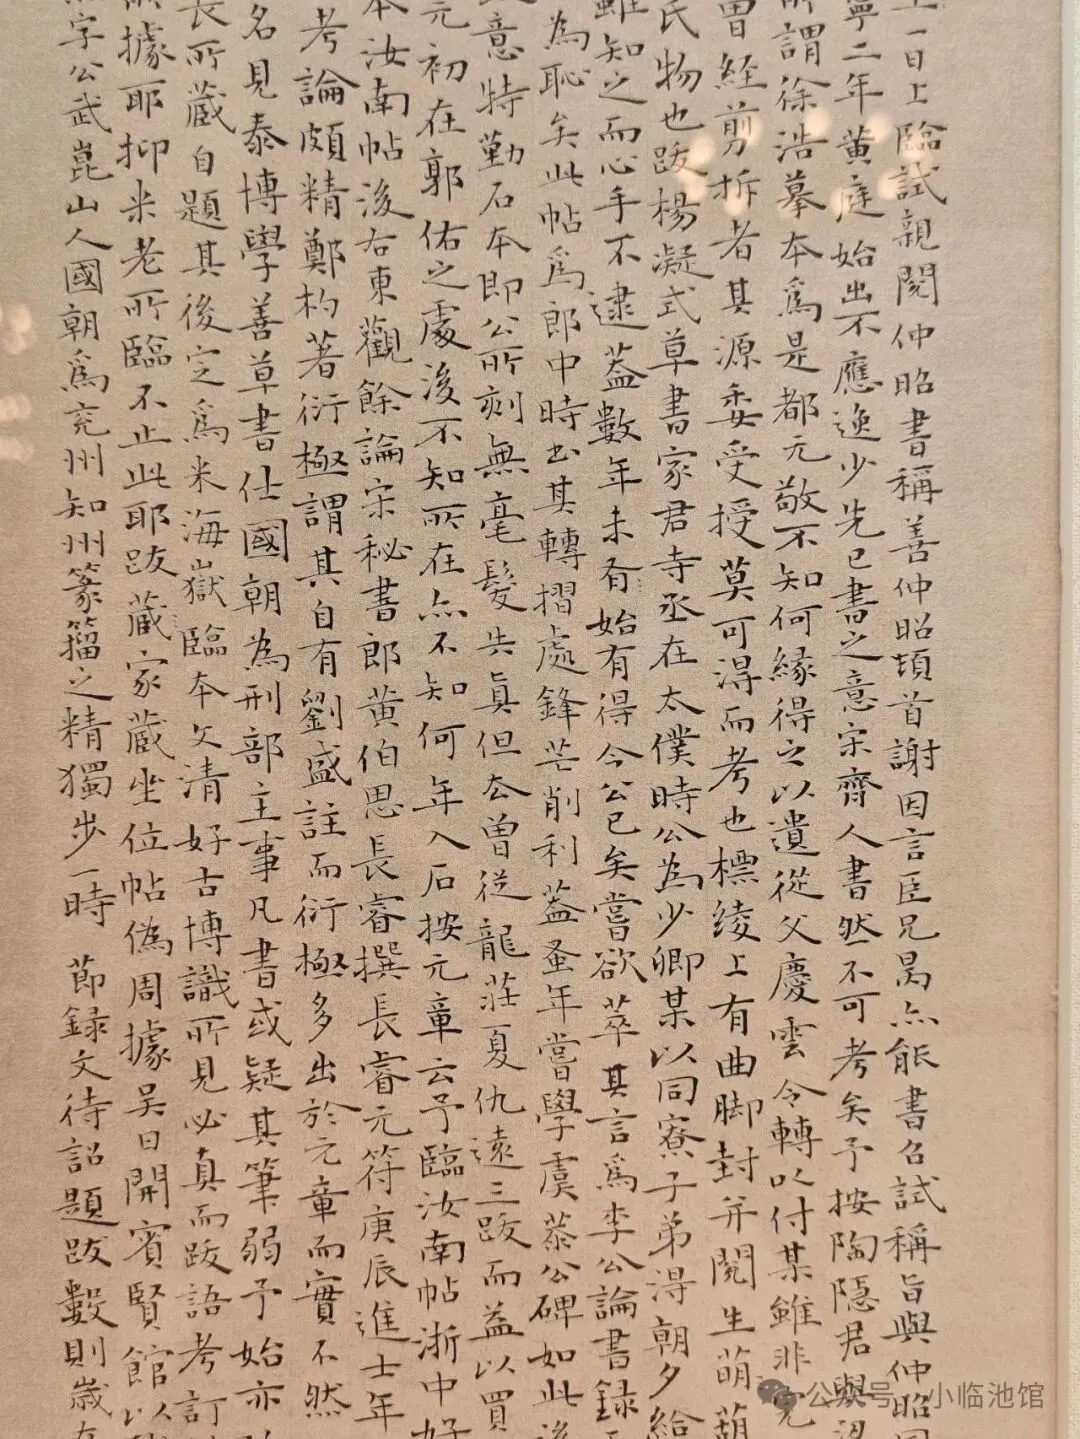 上一日上臨試親閱仲昭書稱善仲昭頓首謝因言臣兄昺亦能書召試稱旨與仲昭同
寧二年黄庭始出不應逸少先已書之意宋齊人書然不可考矣予按陶隱君與梁
所謂徐浩摹本爲是都元敬不知何緣得之以遺從父慶雲令轉以付某雖非元
曾經剪拆者其源委受授莫可得而考也標綾上有曲脚封并閱生萌葫
氏物也跋楊凝式草書家君寺丞在太僕時公為少卿某以同寮子弟得朝夕給
雖知之而心手不逮葢數年未有始有得今公已矣嘗欲萃其言爲李公論書錄
為恥矣此帖爲郎中時書其轉摺處鋒芒削利葢蚤年嘗學虞恭公碑如此後
意特勤石本即公所刻無毫髮失真但本曽從龍莊夏仇遠三跋而益以買
元初在郭佑之處後不知所在亦不知何年入石按元章云予臨汝南帖浙中好
本汝南帖後右東觀餘論宋秘書郎黄伯思長睿撰長睿元符庚辰進士年
考論頗精鄭杓著衍極謂其自有劉盛註而衍極多出於元章而實不然
名見泰博學善草書仕國朝為刑部主事凡書或疑其筆弱予始亦
長所藏自題其後定爲米海嶽臨本文清好古博識所見必真而跋語考訂
據耶抑米老所臨不止此耶跋藏家藏坐位帖偽周據吳日開賓賢館以
字公武崑山人國朝爲兖州知州篆籀之精獨步一時 節錄文待詔題跋數則歲在
公众号 小临池馆